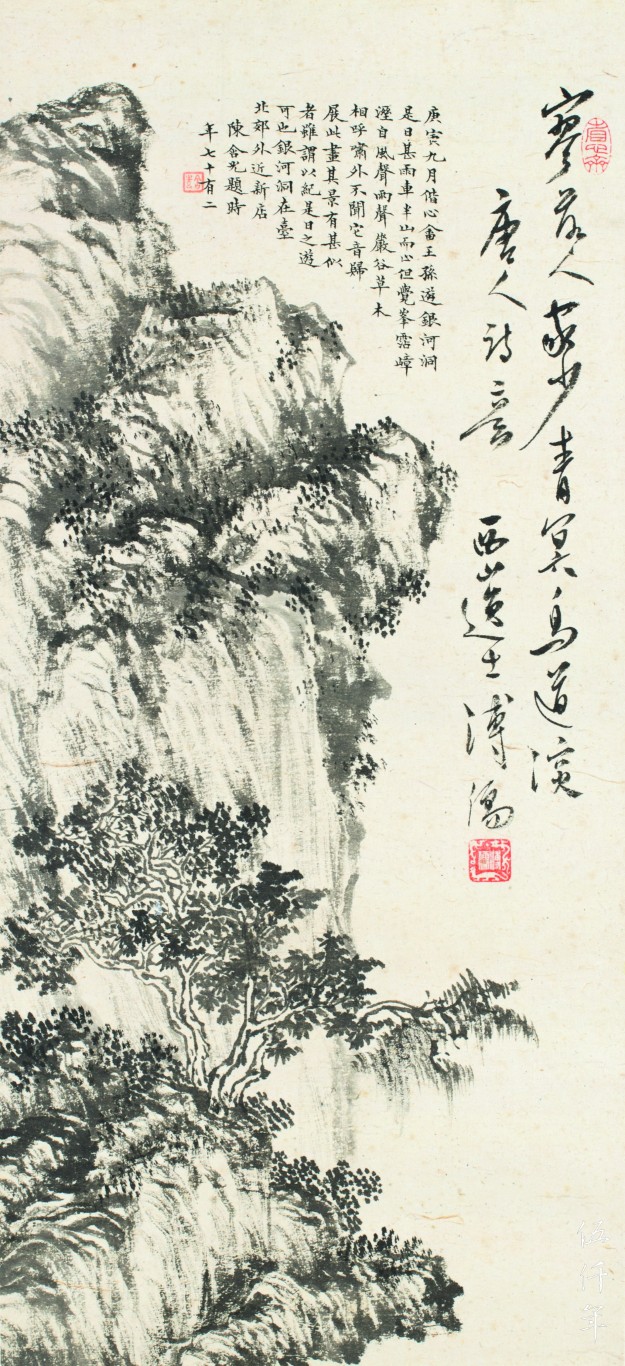 寥落人家少青冥鳥道深
唐人詩意
西山逸士溥儒
庚寅九月偕心畬王孫遊銀河洞
是日甚雨車半山而止但覺峯雲嶂
溼自風聲雨聲巖谷草木
相呼嘯外不聞它音歸
展此畫其景有甚似
者雖謂以紀是日之遊
可也銀河洞在臺
北郊外近新店
陳含光題時
年七十有二